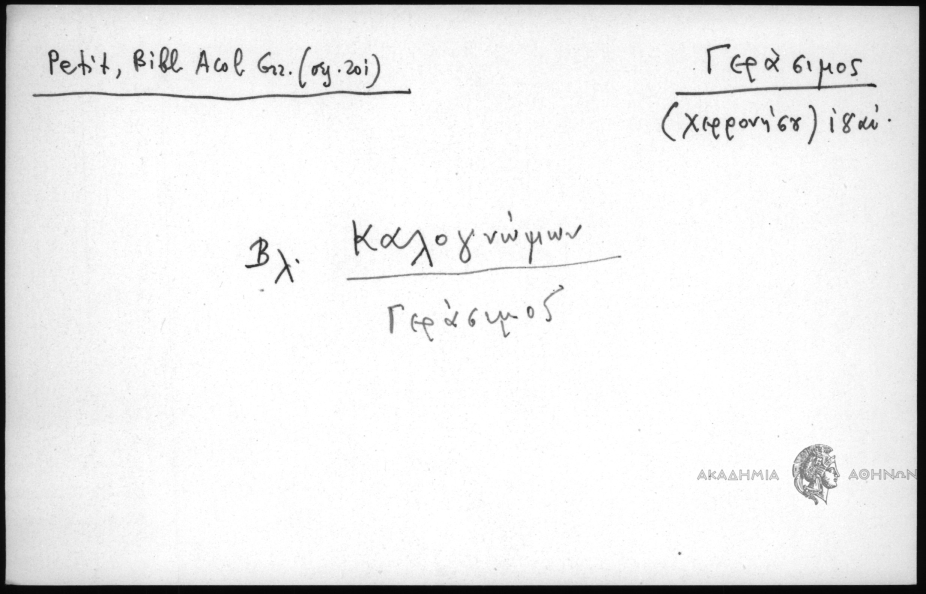 Petit, Bibl Acol Grr. (σχ. 201)
Γεράσιμος
(Χερρονήσου) ιη αἰ.
Βλ. Καλογνώμων
Γεράσιμος
ΑΚΑΔΗΜΙΑ ΑΘΗΝΩΝ